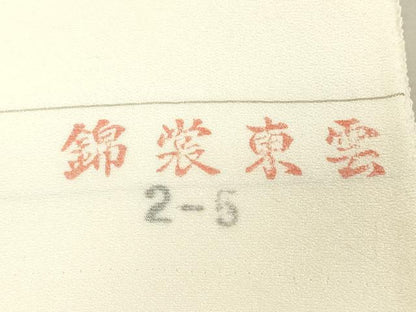 錦裳東雲
2-5